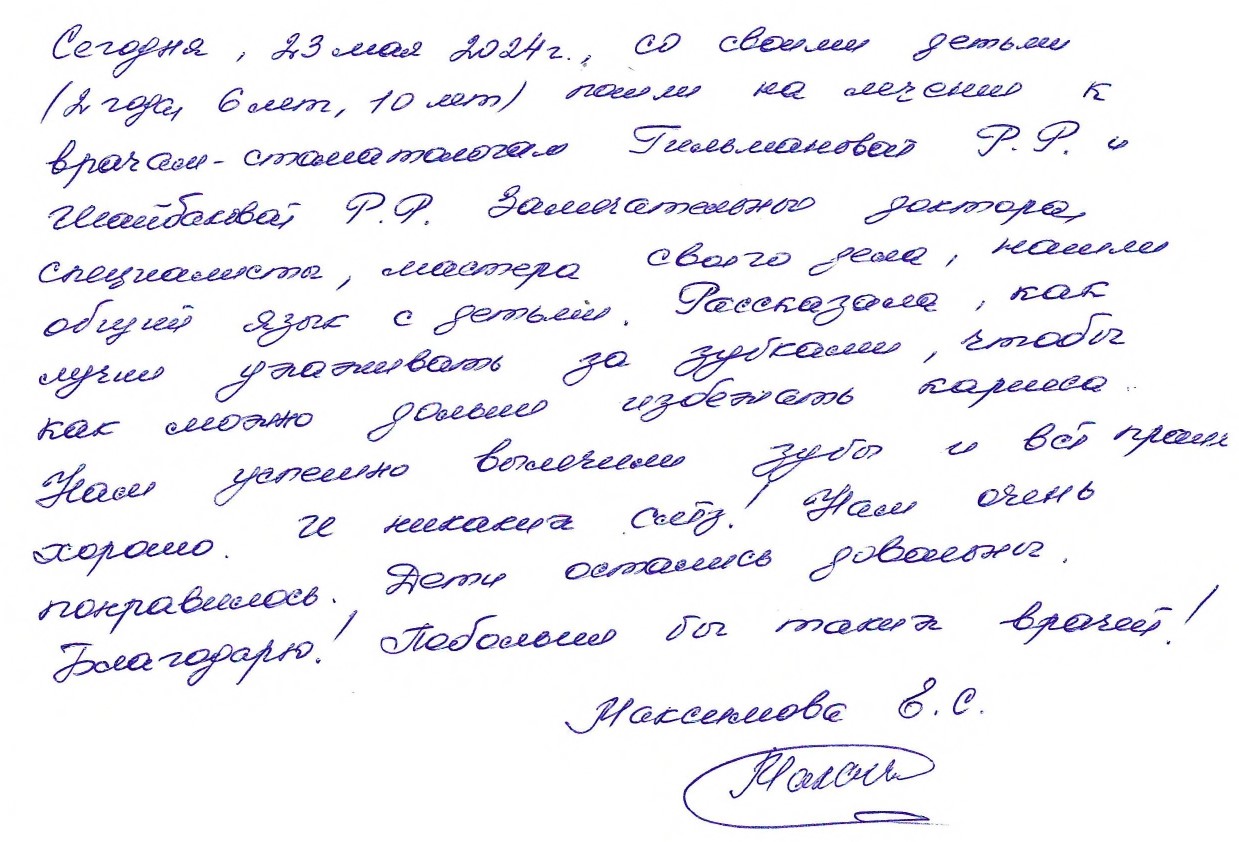 Сегодня, 23 мая 2024г., со своими детьми
(2 года, 6 лет, 10 лет) пошли на лечение к
врачам-стоматологам Гильмановой Р.Р. и
Шайбаковой Р.Р. Замечательные доктора,
специалисты, мастера своего дела, нашли
общий язык с детьми. Рассказали, как
лучше ухаживать за зубками, чтобы
как можно дольше избежать кариеса.
Нам успешно вылечили зубы и всё
хорошо. И никаких слёз! Нам очень
понравилось. Дети остались довольны.
Благодарю! Побольше бы таких врачей!
Максимова Е.С.